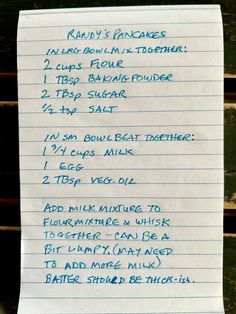 RANDY'S PANCAKES
IN LRG BOWL MIX TOGETHER:
2 cups FLOUR
1 TBsp BAKING POWDER
2 TBsp SUGAR
1/2 tsp SALT
IN SM BOWL BEAT TOGETHER:
1 3/4 cups MILK
1 EGG
2 TBsp VEG. OIL
ADD MILK MIXTURE TO
FLOUR MIXTURE & WHISK
TOGETHER - CAN BE A
BIT LUMPY. (MAY NEED
TO ADD MORE MILK)
BATTER SHOULD BE THICK-ish.